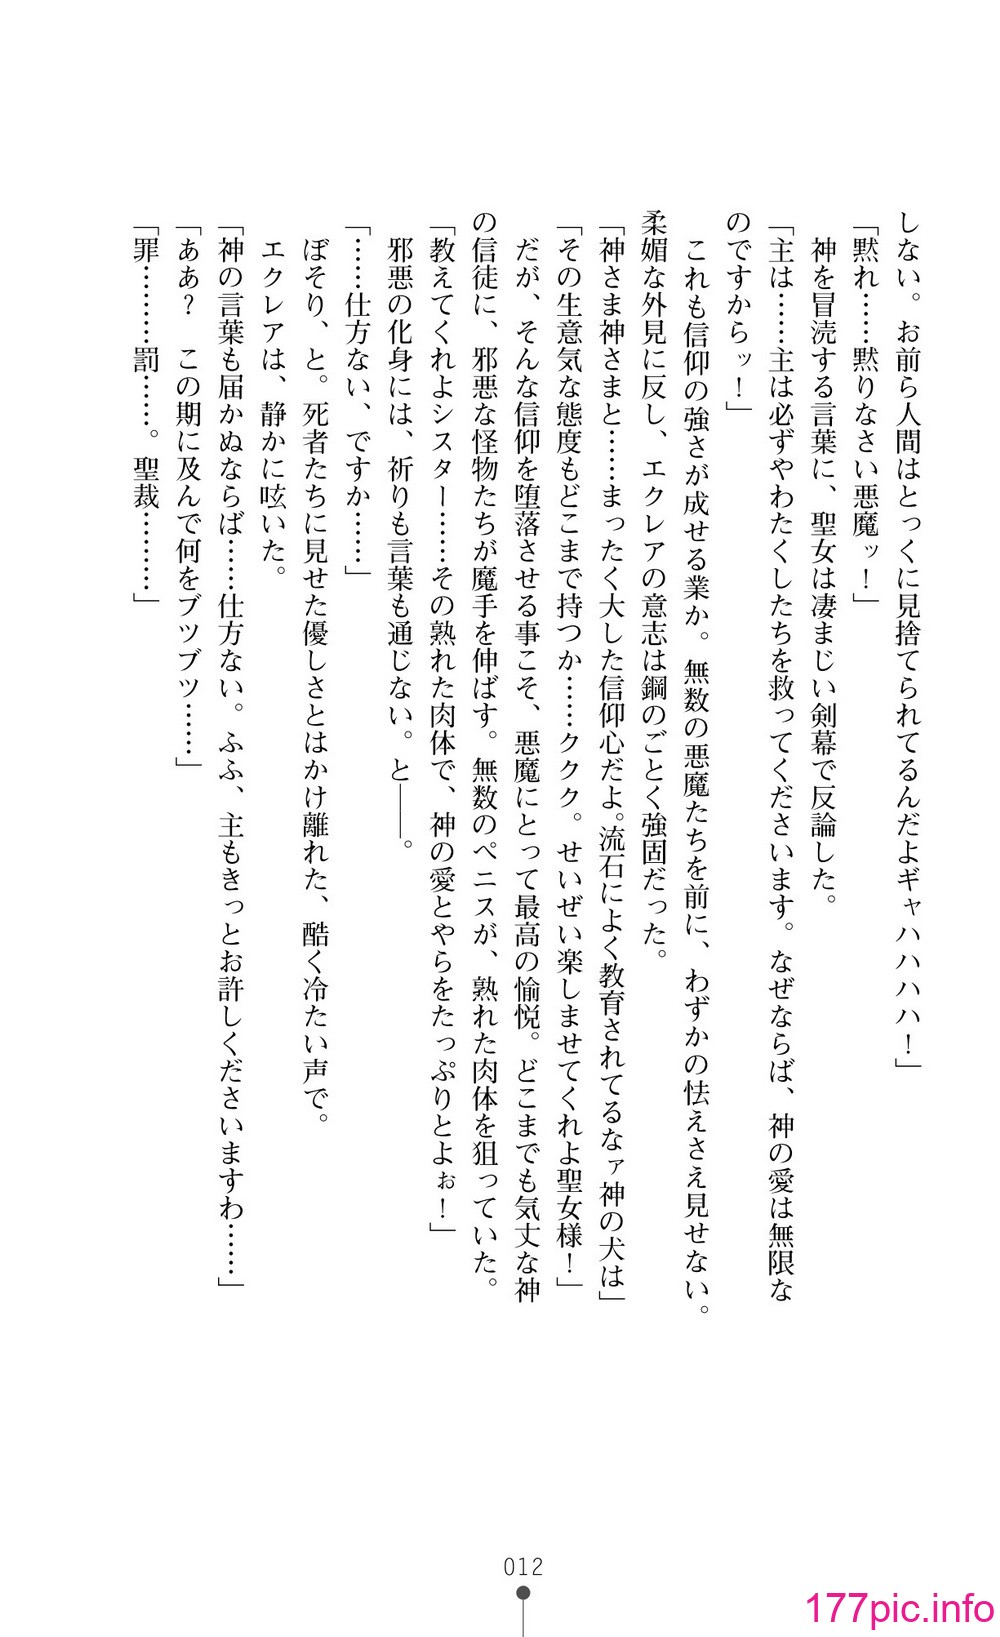 しない。お前ら人間はとっくに見捨てられてるんだよギャハハハハ！」
「黙れ……黙りなさい悪魔ッ！」
神を冒涜する言葉に、聖女は凄まじい剣幕で反論した。
「主は……主は必ずやわたくしたちを救ってくださいます。なぜならば、神の愛は無限な
のですからッ！」
これも信仰の強さが成せる業か。無数の悪魔たちを前に、わずかの怯えさえ見せない。
柔媚な外見に反し、エクレアの意志は鋼のごとく強固だった。
「神さま神さまと……まったく大した信仰心だよ。流石によく教育されてるなァ神の犬は」
「その生意気な態度もどこまで持つか……ククク。せいぜい楽しませてくれよ聖女様！」
だが、そんな信仰を堕落させる事こそ、悪魔にとって最高の愉悦。どこまでも気丈な神
の信徒に、邪悪な怪物たちが魔手を伸ばす。無数のペニスが、熟れた肉体を狙っていた。
「教えてくれよシスター……その熟れた肉体で、神の愛とやらをたっぷりとよぉ！」
邪悪の化身には、祈りも言葉も通じない。と――。
「……仕方ない、ですか……」
ぼそり、と。死者たちに見せた優しさとはかけ離れた、酷く冷たい声で。
エクレアは、静かに呟いた。
「神の言葉も届かぬならば……仕方ない。ふふ、主もきっとお許しくださいますわ……」
「ああ？　この期に及んで何をブツブツ……」
「罪………罰……。聖裁………」
012
177pic.info